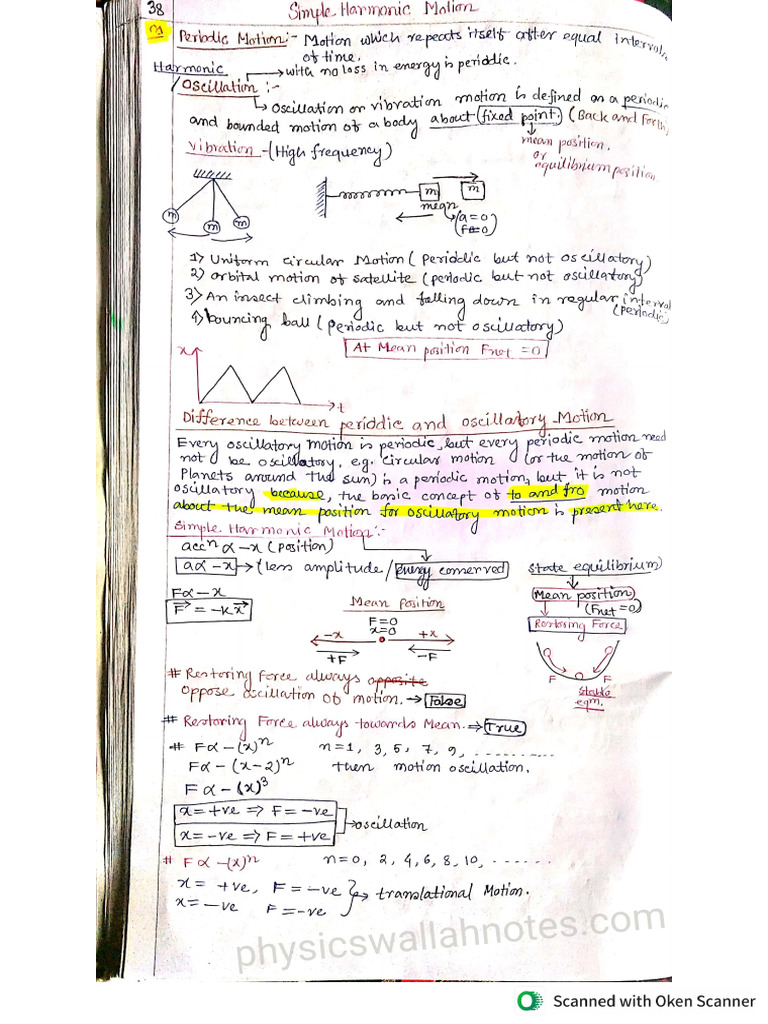 38
Simple Harmonic Motion
Periodic Motion:- Motion which repeats itself after equal intervals
of time.
Harmonic
→with no loss in energy is periodic.
/Oscillation :-
↳ Oscillation or vibration motion is defined as a periodic
and bounded motion of a body about (fixed point.) (Back and Forth)
mean position.
or
equilibrium position
Vibration -(High frequency)
m
m
m
m
m
mean
(a=0)
(F=0)
1) Uniform circular Motion (Periodic but not oscillatory)
2) orbital motion of satellite (periodic but not oscillatory)
3) An insect climbing and falling down in regular interval
(periodic)
4) bouncing ball (Periodic but not oscillatory)
At Mean position Fnet =0
x
t
Difference between periodic and oscillatory Motion
Every oscillatory motion is periodic, but every periodic motion need
not be oscillatory. eg. circular motion (or the motion of
Planets around the sun) is a periodic motion, but it is not
oscillatory because, the basic concept of to and fro motion
about the mean position for oscillatory motion is present here.
Simple Harmonic Motion:-
accⁿ α -x (position)
aα -x → (less amplitude/Energy conserved
State equilibrium)
Mean position)
(Fnet=0)
Restoring Force
Fα-x
F⃗ = -kx⃗
Mean Position
F=0
x=0
-x
+x
+F
-F
F
F
Stable
eqm.
# Restoring Force always opposite
oppose oscillation of motion. → False
# Restoring Force always towards Mean. → True
# Fα-(x)ⁿ n=1, 3, 5, 7, 9, ..........
Fα-(x-2)ⁿ then motion oscillation.
Fα-(x)³
x=+ve ⇒ F=-ve
x=-ve ⇒ F=+ve
→oscillation
# Fα-(x)ⁿ n=0, 2, 4, 6, 8, 10, ......
x= +ve, F=-ve
x=-ve F=-ve
→ translational Motion.
physicswallahnotes.com
Scanned with Oken Scanner